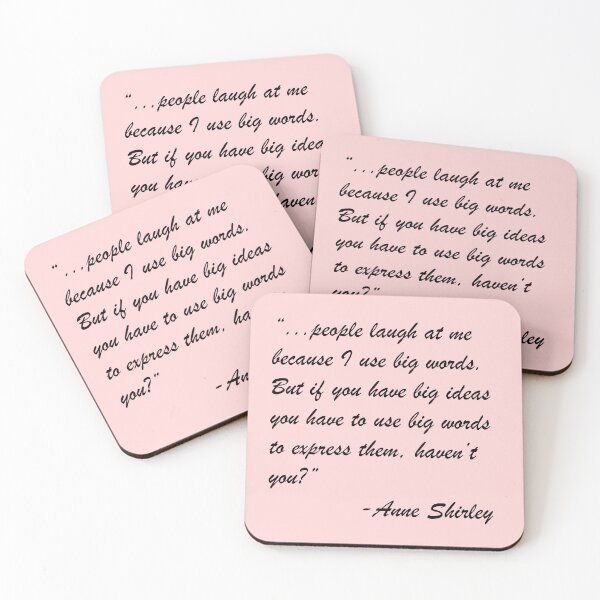 “...people laugh at me
because I use big words.
But if you have big ideas
you hav
big wor
haven
“...people laugh at me
because I use big words.
But if you have big ideas
you have to use big words
to express them, haven’t
you?”
ley
“...people laugh at me
because I use big words.
But if you have big ideas
you have to use big words
to express them, ha
you?”
-An
“...people laugh at me
because I use big words.
But if you have big ideas
you have to use big words
to express them, haven’t
you?”
-Anne Shirley